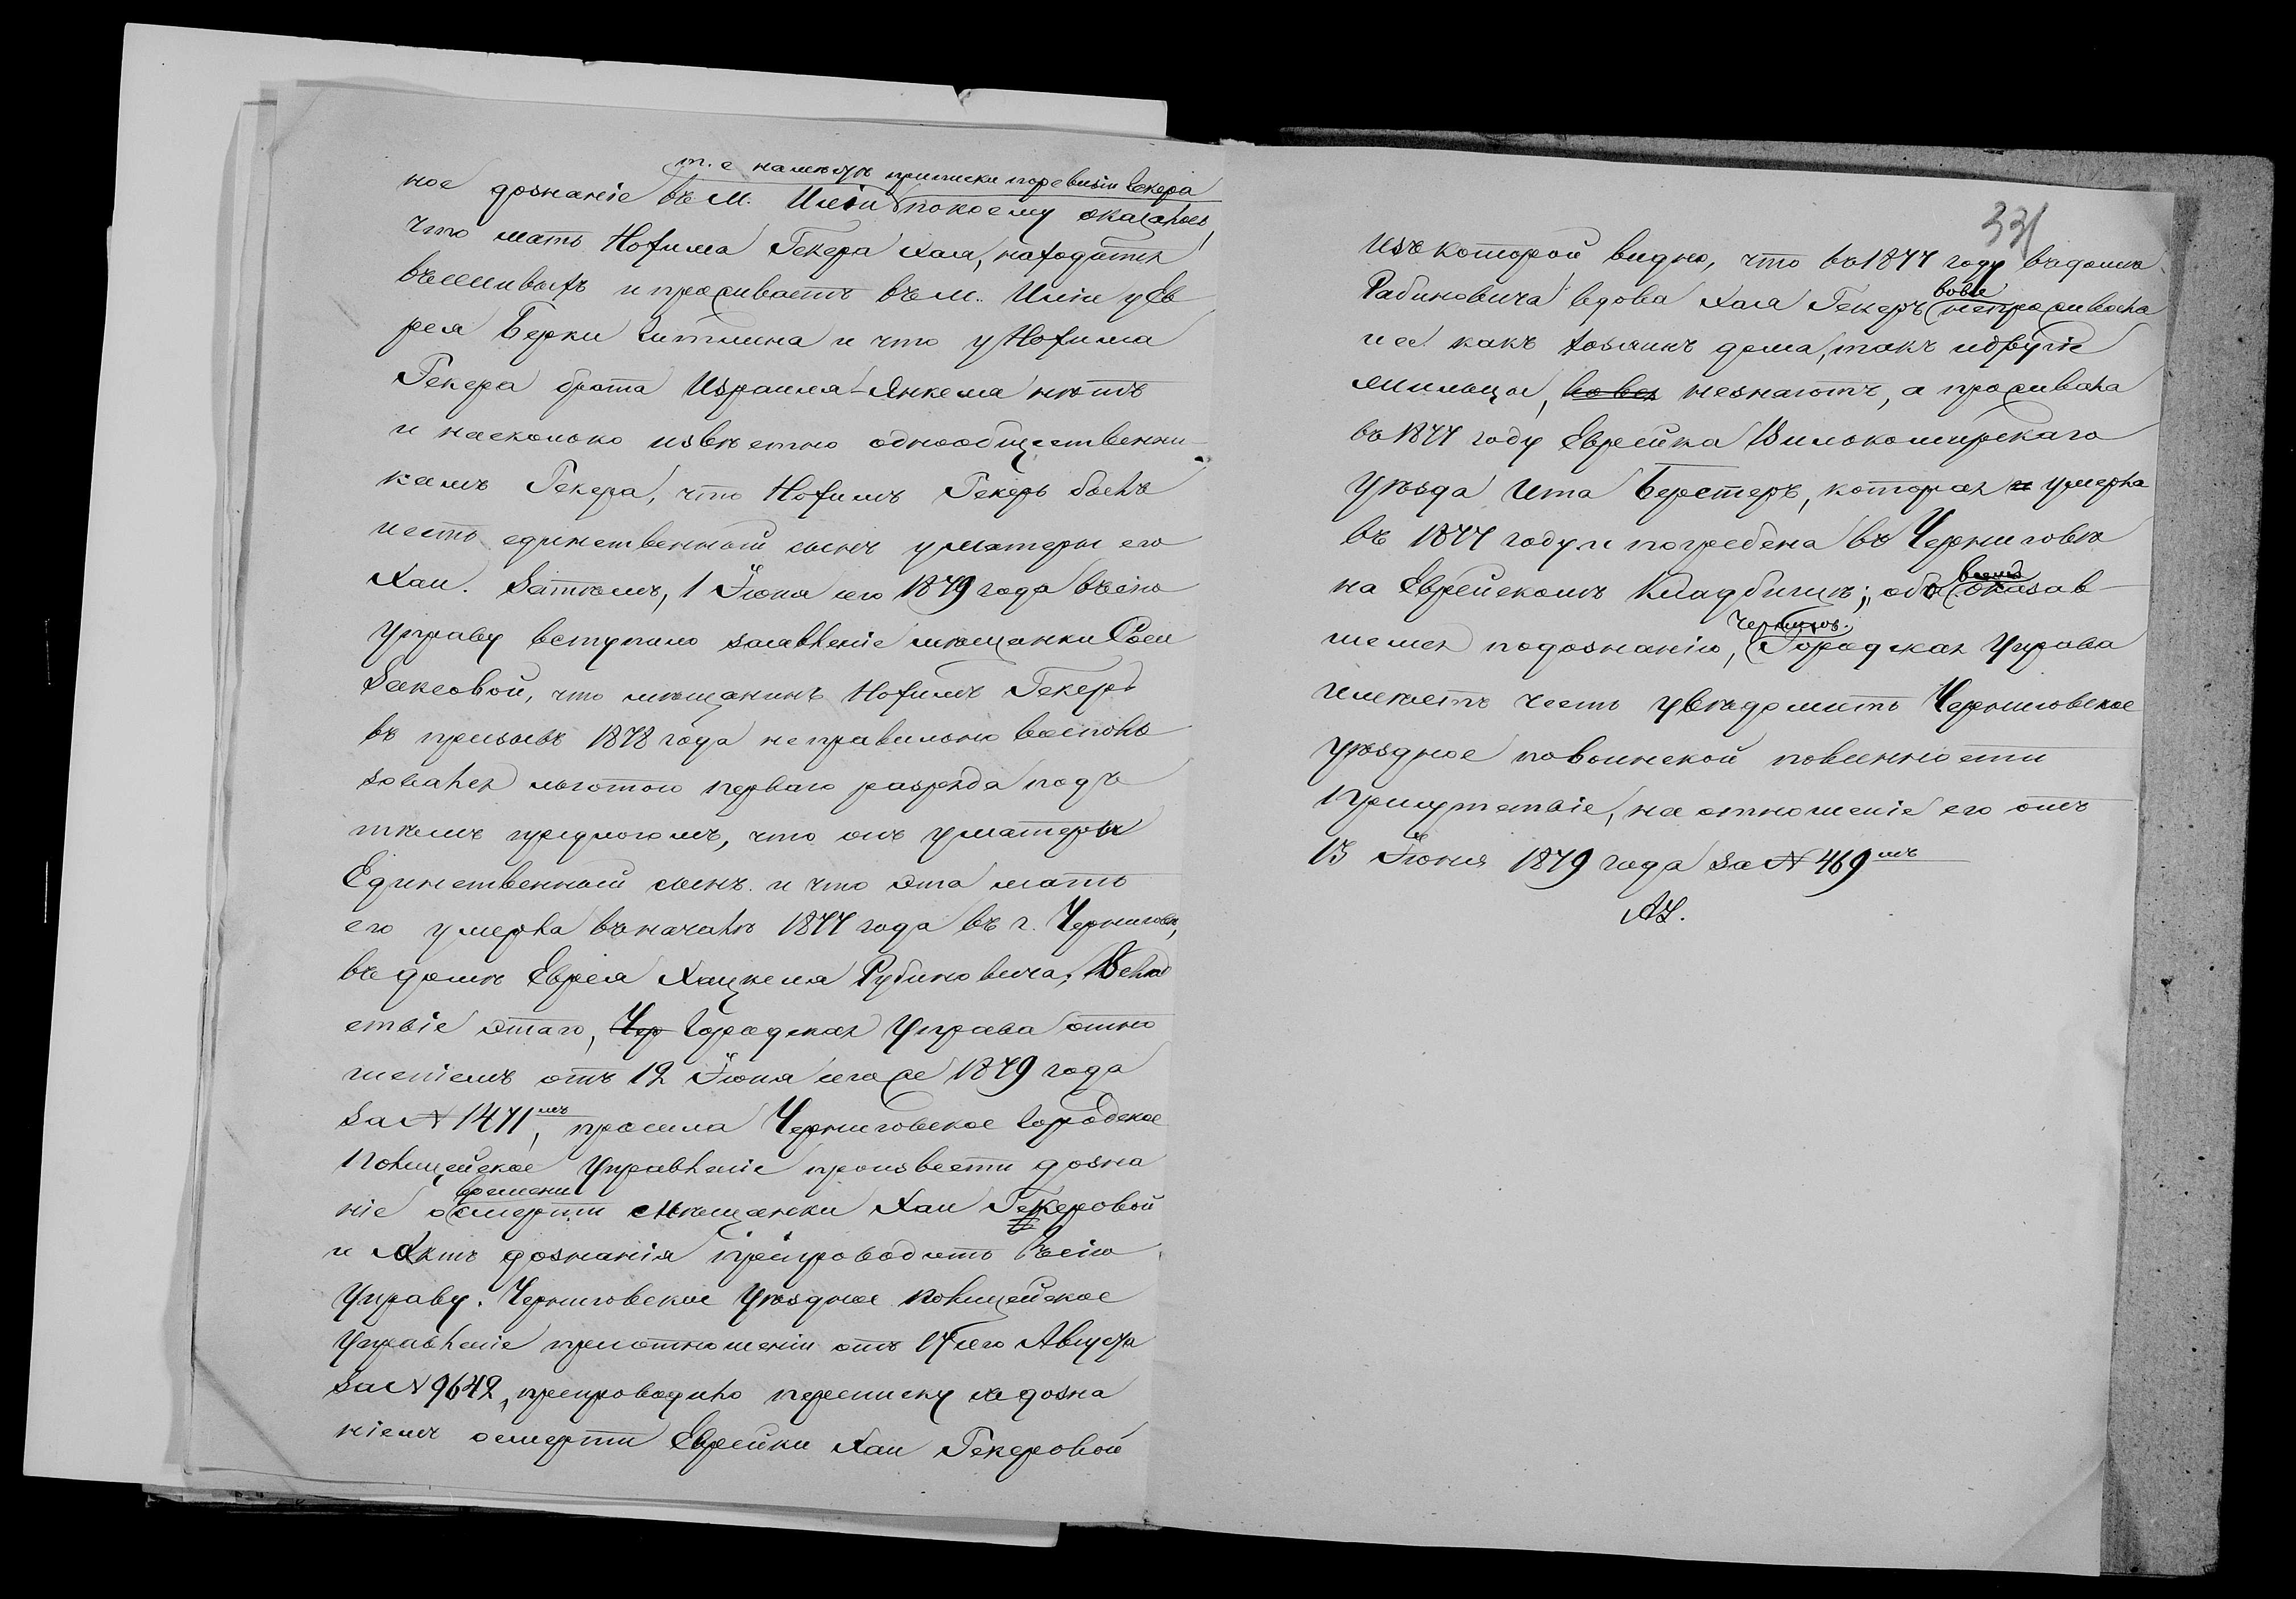 т. е на мѣстѣ приписки по ревизіи Гекера
ное дознаніе въ М. Иліи по коему оказалось,
что мать Нохима Гекера Хая, находится
въ живыхъ и проживаетъ въ м. Иліи у Ев
рея Берки Гитлина и что у Нохима
Гекера брата Израиля-Янкеля нѣтъ
и насколько извѣстно однообщественни-
камъ Гекера, что Нохимъ Гекеръ былъ
и есть единственный сынъ у матери его
Хаи. Затѣмъ, 1 Іюня сего 1879 года въ сію
Управу вступило заявленіе мѣщанки Соси
Заксовой, что мѣщанинъ Нохимъ Гекеръ
въ призывъ 1878 года неправильно восполь
зовался льготою перваго разряда подъ
тѣмъ предлогомъ, что онъ у матери
Единственный сынъ и что эта мать
его умерла въ началѣ 1877 года въ г. Черниговѣ,
въ домѣ Еврея Хацкеля Рубиновича; Вслѣд
ствіе этаго, Чер Городская Управа отно
шеніемъ отъ 12 Іюня сего же 1879 года
за № 1471мъ, просила Черниговское Городское
Полицейское Управленіе произвести дозна
времени
ніе о смерти мѣщанки Хаи Гекеровой
и Актъ дознанія препроводить въ сію
Управу. Черниговское Уѣздное Полицейское
Управленіе при отношеніи отъ 17 сего Августа
за № 9642, препроводило переписку съ дозна
ніемъ о смерти Еврейки Хаи Гекеровой
331
изъ которой видно, что въ 1877 году въ домѣ
вовсе
Рабиновича вдова Хая Гекеръ не проживала
и ее какъ хозяинъ дома, такъ и другіе
жильцы, вовсе не знаютъ, а проживала
въ 1877 году Еврейка Вилькомирскаго
Уѣзда Ита Берстеръ, которая и умерла
въ 1877 году и погребена въ Черниговѣ
на Еврейскомъ Кладбищѣ; объ оказав-
Чернигов.
шемся по дознанію, Городская Управа
имѣетъ честь увѣдомить Черниговское
уѣздное по воинской повинности
Присутствіе, на отношеніе его отъ
13 Іюня 1879 года за № 469мъ